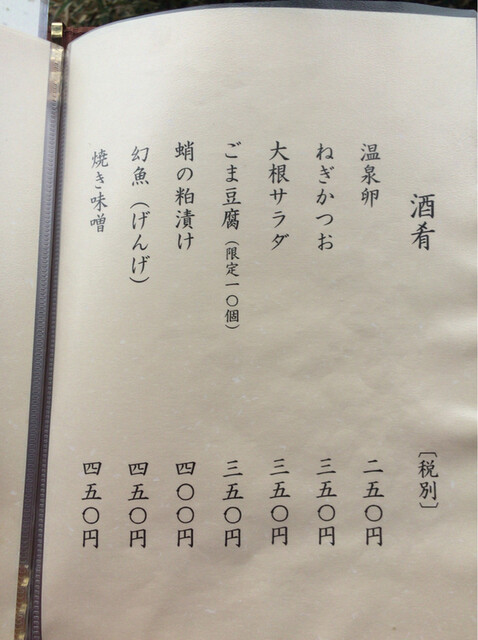 酒肴 〔税別〕
温泉卵 二五〇円
ねぎかつお 三五〇円
大根サラダ 三五〇円
ごま豆腐（限定一〇個） 三五〇円
蛸の粕漬け 四〇〇円
幻魚（げんげ） 四五〇円
焼き味噌 四五〇円